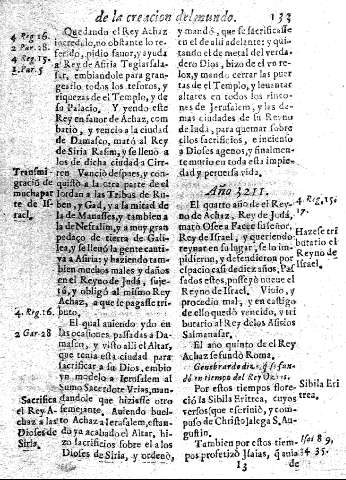 de la creacion del mundo. 133
4 Reg 16.
2 Par. 28.
4 Reg. 15.
1 Par. 5
Quedando el Rey Achaz
incredulo, no obstante lo re-
ferido, pidio fauor, y ayuda
a Rey de Asiria Teglasfala-
sar, embiandole para gran-
gearlo todos los tesoros, y
riquezas de el Templo, y de
su Palacio. Y yendo este
Rey en fauor de Achaz, com-
batio, y vencio a la ciudad
de Damasco, matò al Rey
de Siria Rasin, y se lleuò a los
de dicha ciudad a Cirren
Transmi
gració de
muchapar
te de Is-
rael.
Vencio despues, y con-
quistò a la otra parte de el
Iordan a las Tribus de Ru-
ben, y Gad, y a la mitad de
la de Manasses, y tambien a
la de Neftalin, y a muy gran
pedaço de tierra de Gali-
lea, y se lleuò la gente cauti-
va a Asiria; y haziendo tam-
bien muchos males y daños
en el Reyno de Iudà, suje-
tò, y obligò al mismo Rey
Achaz, a que se pagasse tri-
buto,
4. Reg. 16.
2 Par. 28
El qual auiendo ydo en
las ocasiones passadas a Da-
masco, y visto allí el Altar,
que tenia esta ciudad para
sacrificar a su Dios, embio
vn modelo a Ierusalem al
Sumo Sacerdote Vrias, man-
dandole que hiziesse otro
semejante. Auiendo buel-
to Achaz a Ierusalem, estan-
do ya acabado el Altar, hi-
zo sacrificios sobre el a los
Dioses de Siria, y ordenò,
Sacrifica
el Rey A-
chaz a las
Dioses de
Siria.
y mandò, que se sacrificasse
en el de alli adelante; y qui-
tando el de metal del verda-
dero Dios, hizo de el vn re-
lox, y mandò cerrar las puer-
tas de el Templo, y leuantar
altares en todos los rinco-
nes de Ierusalem, y las de-
mas ciudades de su Reyno
de Iudà, para quemar sobre
ellos sacrificios, e incienso
a Dioses agenos, y finalmen-
te murio en toda esta impie-
dad y peruersa vida.
Año 3211.
El quarto año de el Rey-
no de Achaz, Rey de Iudà,
matò Osee a Facee su señor,
Rey de Israel, y queriendo
reynar en su lugar, se lo im-
pidieron, y defendieron por
espacio casi de diez años. Pas-
sados estos, posseyò nueue el
Reyno de Israel. Viuio, y
procedio mal, y en castigo
de ello quedò vencido, y tri-
butario al Rey de los Asirios
Salmanasar.
4 Reg, 15.
17.
Hazese tri
butario el
Reyno de
Israel.
El año quinto de el Rey
Achaz se fundò Roma.
Genebrardo dize, q̃ se fun-
dò en tiempo del Rey Ozias.
Por estos tiempos flore-
ciò la Sibila Eritrea, cuyos
versos (que escriuiò, y com-
puso de Christo) alega S. Au-
gustin.
Sibila Eri
trea.
Tambien por estos tiem-
pos profetizò Isaias, q̃ auia
Isai 8 9,
34 35.
I3 de